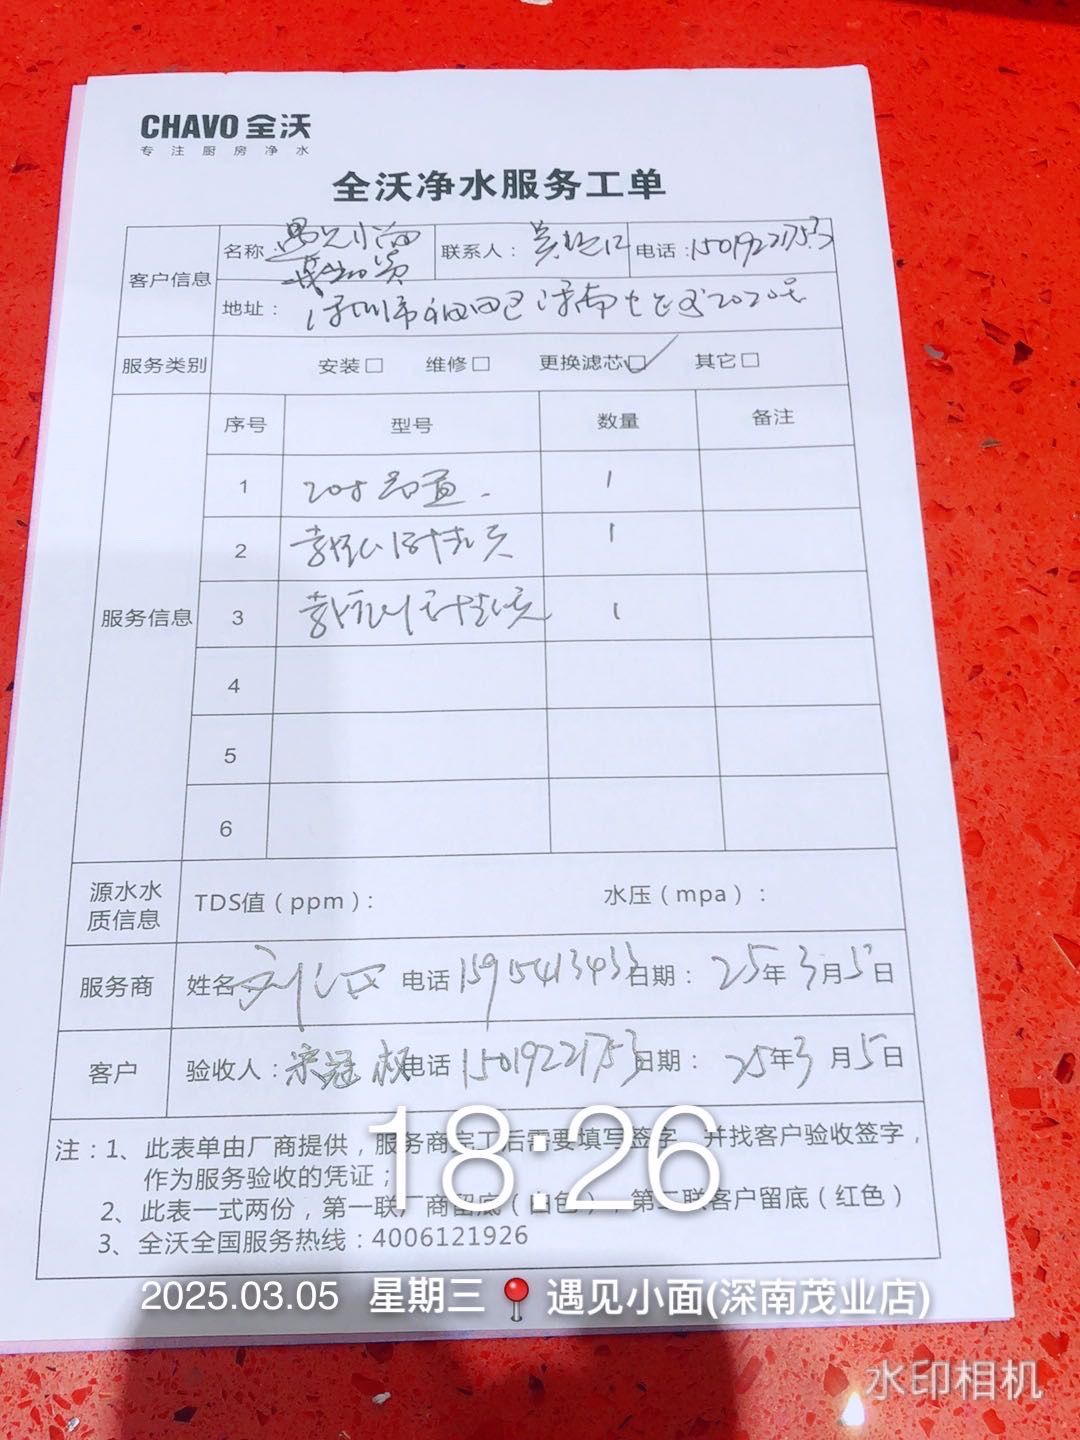 CHAVO 全沃
专注厨房净水
全沃净水服务工单
客户信息 名称 遇见小面 联系人： 电话：15019221753
地址： 深圳市福田区深南大道2020号
服务类别 安装□ 维修□ 更换滤芯□✓ 其它□
服务信息 序号 型号 数量 备注
1 20寸 1
2 1
3 1
4
5
6
源水水质信息 TDS值（ppm）： 水压（mpa）：
服务商 姓名： 刘 电话 15915413433 日期： 25年3月5日
客户 验收人：宋冠权 电话 15019221753 日期： 25年3月5日
注：1、此表单由厂商提供，服务商完工后需要填写签字，并找客户验收签字，
作为服务验收的凭证；
2、此表一式两份，第一联厂商留底（白色），第二联客户留底（红色）
3、全沃全国服务热线：4006121926
18:26
2025.03.05 星期三 遇见小面(深南茂业店)
水印相机